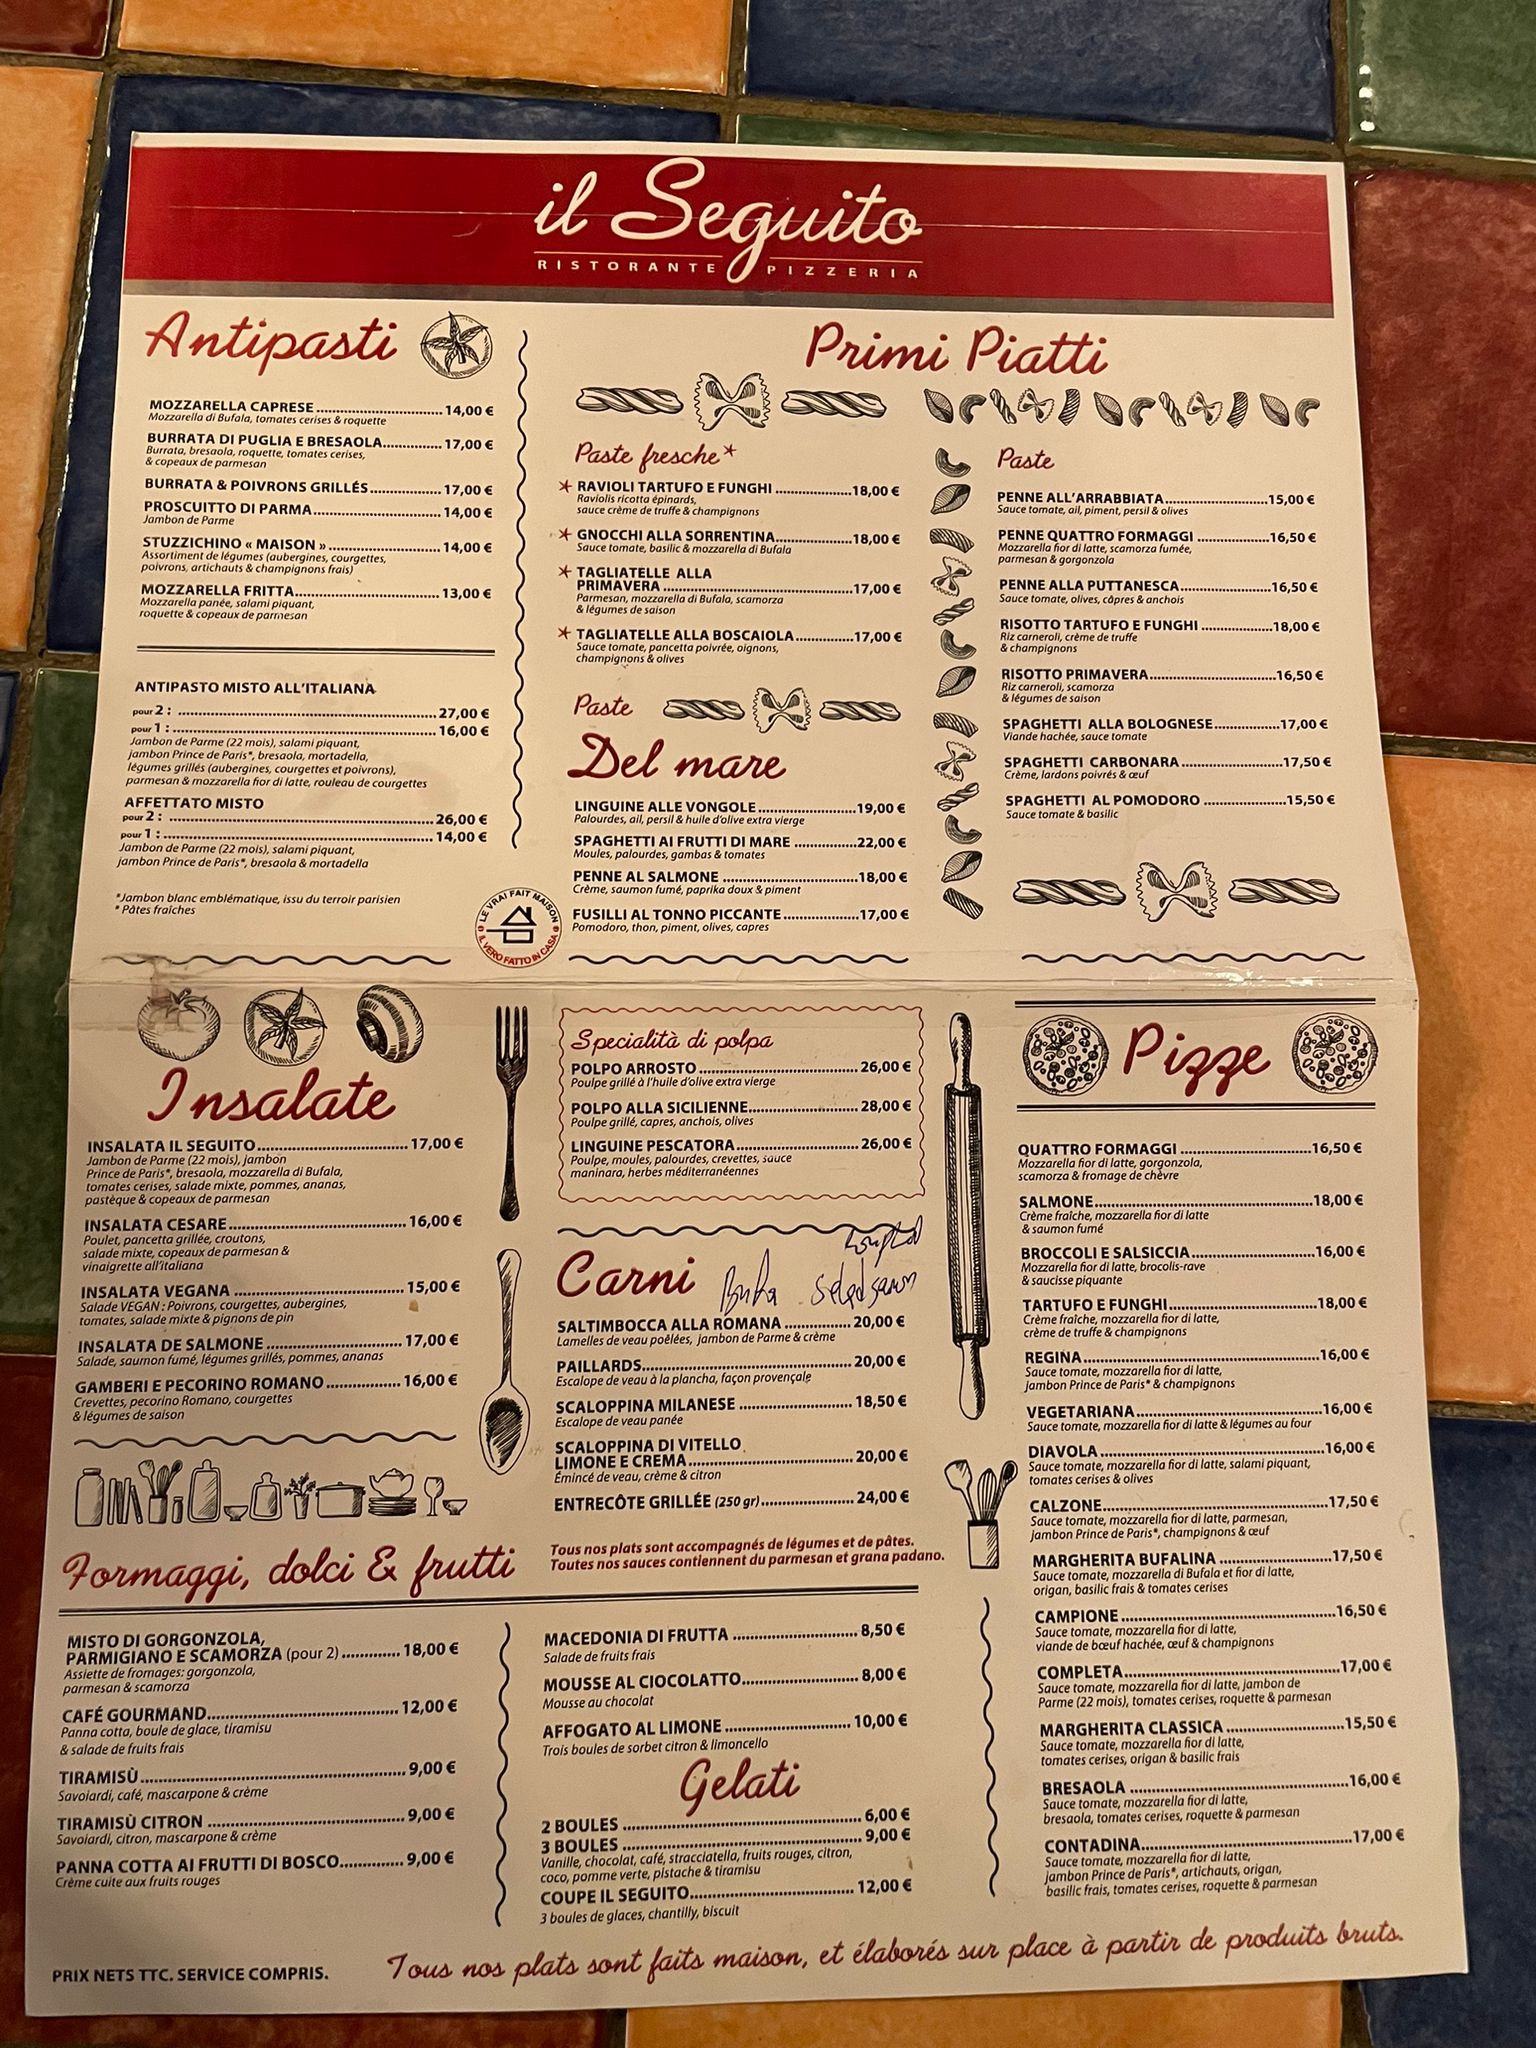 il Seguito
RISTORANTE PIZZERIA
Antipasti
MOZZARELLA CAPRESE 14,00 €
Mozzarella di Bufala, tomates cerises & roquette
BURRATA DI PUGLIA E BRESAOLA 17,00 €
Burrata, bresaola, roquette, tomates cerises,
& copeaux de parmesan
BURRATA & POIVRONS GRILLÉS 17,00 €
PROSCUITTO DI PARMA 14,00 €
Jambon de Parme
STUZZICHINO « MAISON » 14,00 €
Assortiment de légumes (aubergines, courgettes,
poivrons, artichauts & champignons frais)
MOZZARELLA FRITTA 13,00 €
Mozzarella panée, salami piquant,
roquette & copeaux de parmesan
ANTIPASTO MISTO ALL'ITALIANA
pour 2 : 27,00 €
pour 1 : 16,00 €
Jambon de Parme (22 mois), salami piquant,
jambon Prince de Paris*, bresaola, mortadella,
légumes grillés (aubergines, courgettes et poivrons),
parmesan & mozzarella fior di latte, rouleau de courgettes
AFFETTATO MISTO
pour 2 : 26,00 €
pour 1 : 14,00 €
Jambon de Parme (22 mois), salami piquant,
jambon Prince de Paris*, bresaola & mortadella
*Jambon blanc emblématique, issu du terroir parisien
* Pâtes fraîches
LE VRAI FAIT MAISON
IL VERO FATTO IN CASA
Primi Piatti
Paste fresche*
* RAVIOLI TARTUFO E FUNGHI 18,00 €
Raviolis ricotta épinards,
sauce crème de truffe & champignons
* GNOCCHI ALLA SORRENTINA 18,00 €
Sauce tomate, basilic & mozzarella di Bufala
* TAGLIATELLE ALLA
PRIMAVERA 17,00 €
Parmesan, mozzarella di Bufala, scamorza
& légumes de saison
* TAGLIATELLE ALLA BOSCAIOLA 17,00 €
Sauce tomate, pancetta poivrée, oignons,
champignons & olives
Paste
Del mare
LINGUINE ALLE VONGOLE 19,00 €
Palourdes, ail, persil & huile d'olive extra vierge
SPAGHETTI AI FRUTTI DI MARE 22,00 €
Moules, palourdes, gambas & tomates
PENNE AL SALMONE 18,00 €
Crème, saumon fumé, paprika doux & piment
FUSILLI AL TONNO PICCANTE 17,00 €
Pomodoro, thon, piment, olives, capres
Paste
PENNE ALL'ARRABBIATA 15,00 €
Sauce tomate, ail, piment, persil & olives
PENNE QUATTRO FORMAGGI 16,50 €
Mozzarella fior di latte, scamorza fumée,
parmesan & gorgonzola
PENNE ALLA PUTTANESCA 16,50 €
Sauce tomate, olives, câpres & anchois
RISOTTO TARTUFO E FUNGHI 18,00 €
Riz carneroli, crème de truffe
& champignons
RISOTTO PRIMAVERA 16,50 €
Riz carneroli, scamorza
& légumes de saison
SPAGHETTI ALLA BOLOGNESE 17,00 €
Viande hachée, sauce tomate
SPAGHETTI CARBONARA 17,50 €
Crème, lardons poivrés & œuf
SPAGHETTI AL POMODORO 15,50 €
Sauce tomate & basilic
Insalate
INSALATA IL SEGUITO 17,00 €
Jambon de Parme (22 mois), jambon
Prince de Paris*, bresaola, mozzarella di Bufala,
tomates cerises, salade mixte, pommes, ananas,
pastèque & copeaux de parmesan
INSALATA CESARE 16,00 €
Poulet, pancetta grillée, croutons,
salade mixte, copeaux de parmesan &
vinaigrette all'italiana
INSALATA VEGANA 15,00 €
Salade VEGAN : Poivrons, courgettes, aubergines,
tomates, salade mixte & pignons de pin
INSALATA DE SALMONE 17,00 €
Salade, saumon fumé, légumes grillés, pommes, ananas
GAMBERI E PECORINO ROMANO 16,00 €
Crevettes, pecorino Romano, courgettes
& légumes de saison
Specialità di polpa
POLPO ARROSTO 26,00 €
Poulpe grillé à l'huile d'olive extra vierge
POLPO ALLA SICILIENNE 28,00 €
Poulpe grillé, capres, anchois, olives
LINGUINE PESCATORA 26,00 €
Poulpe, moules, palourdes, crevettes, sauce
maninara, herbes méditerranéennes
Carni
SALTIMBOCCA ALLA ROMANA 20,00 €
Lamelles de veau poêlées, jambon de Parme & crème
PAILLARDS 20,00 €
Escalope de veau à la plancha, façon provençale
SCALOPPINA MILANESE 18,50 €
Escalope de veau panée
SCALOPPINA DI VITELLO
LIMONE E CREMA 20,00 €
Émincé de veau, crème & citron
ENTRECÔTE GRILLÉE (250 gr) 24,00 €
Tous nos plats sont accompagnés de légumes et de pâtes.
Toutes nos sauces contiennent du parmesan et grana padano.
Pizze
QUATTRO FORMAGGI 16,50 €
Mozzarella fior di latte, gorgonzola,
scamorza & fromage de chèvre
SALMONE 18,00 €
Crème fraîche, mozzarella fior di latte
& saumon fumé
BROCCOLI E SALSICCIA 16,00 €
Mozzarella fior di latte, brocolis-rave
& saucisse piquante
TARTUFO E FUNGHI 18,00 €
Crème fraîche, mozzarella fior di latte,
crème de truffe & champignons
REGINA 16,00 €
Sauce tomate, mozzarella fior di latte,
jambon Prince de Paris* & champignons
VEGETARIANA 16,00 €
Sauce tomate, mozzarella fior di latte & légumes au four
DIAVOLA 16,00 €
Sauce tomate, mozzarella fior di latte, salami piquant,
tomates cerises & olives
CALZONE 17,50 €
Sauce tomate, mozzarella fior di latte, parmesan,
jambon Prince de Paris*, champignons & œuf
MARGHERITA BUFALINA 17,50 €
Sauce tomate, mozzarella di Bufala et fior di latte,
origan, basilic frais & tomates cerises
CAMPIONE 16,50 €
Sauce tomate, mozzarella fior di latte,
viande de bœuf hachée, œuf & champignons
COMPLETA 17,00 €
Sauce tomate, mozzarella fior di latte, jambon de
Parme (22 mois), tomates cerises, roquette & parmesan
MARGHERITA CLASSICA 15,50 €
Sauce tomate, mozzarella fior di latte,
tomates cerises, origan & basilic frais
BRESAOLA 16,00 €
Sauce tomate, mozzarella fior di latte,
bresaola, tomates cerises, roquette & parmesan
CONTADINA 17,00 €
Sauce tomate, mozzarella fior di latte,
jambon Prince de Paris*, artichauts, origan,
basilic frais, tomates cerises, roquette & parmesan
Formaggi, dolci & frutti
MISTO DI GORGONZOLA,
PARMIGIANO E SCAMORZA (pour 2) 18,00 €
Assiette de fromages: gorgonzola,
parmesan & scamorza
CAFÉ GOURMAND 12,00 €
Panna cotta, boule de glace, tiramisu
& salade de fruits frais
TIRAMISÙ 9,00 €
Savoiardi, café, mascarpone & crème
TIRAMISÙ CITRON 9,00 €
Savoiardi, citron, mascarpone & crème
PANNA COTTA AI FRUTTI DI BOSCO 9,00 €
Crème cuite aux fruits rouges
MACEDONIA DI FRUTTA 8,50 €
Salade de fruits frais
MOUSSE AL CIOCOLATTO 8,00 €
Mousse au chocolat
AFFOGATO AL LIMONE 10,00 €
Trois boules de sorbet citron & limoncello
Gelati
2 BOULES 6,00 €
3 BOULES 9,00 €
Vanille, chocolat, café, stracciatella, fruits rouges, citron,
coco, pomme verte, pistache & tiramisu
COUPE IL SEGUITO 12,00 €
3 boules de glaces, chantilly, biscuit
PRIX NETS TTC. SERVICE COMPRIS.
Tous nos plats sont faits maison, et élaborés sur place à partir de produits bruts.